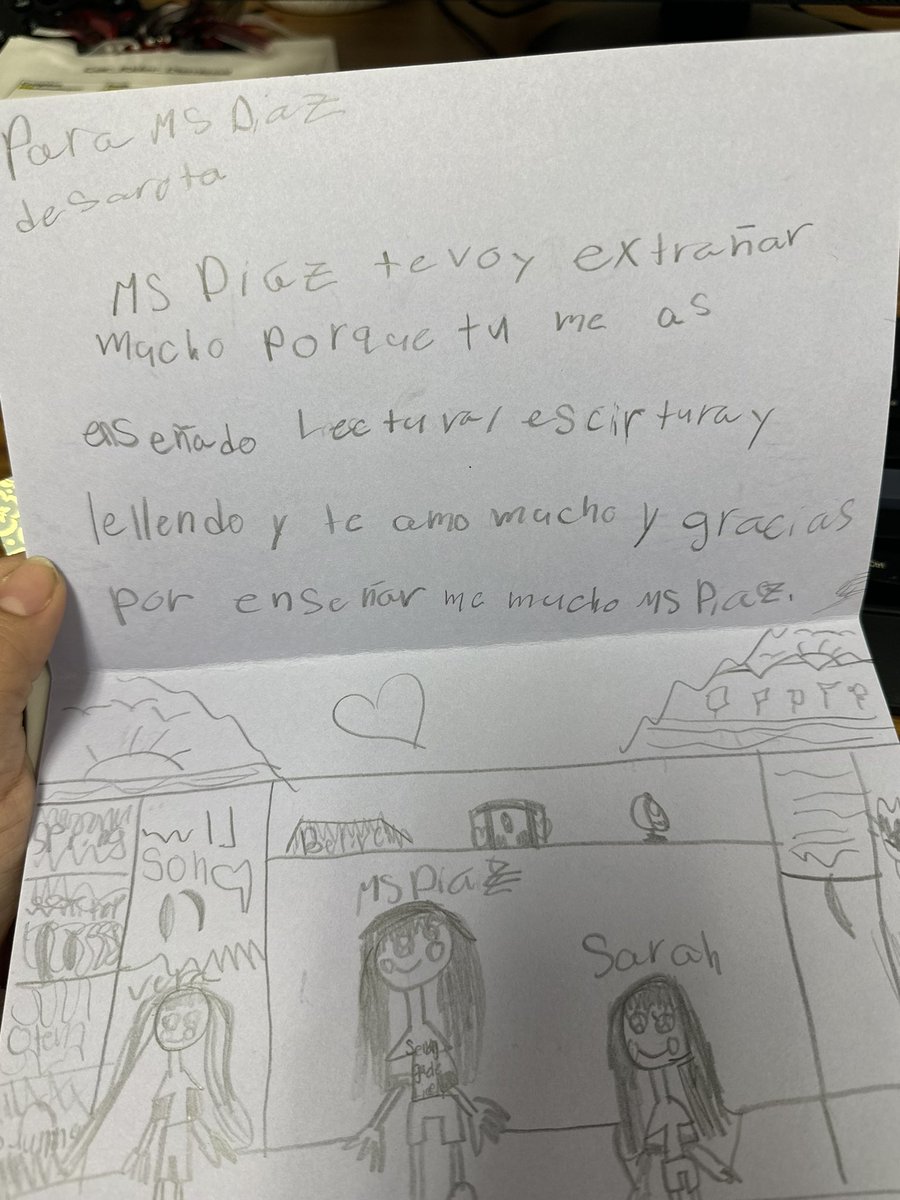 Para MS Diaz
de sarota
MS Diaz te voy extrañar
macho porque tu me as
enseñado Lectura/escirtura y
lellendo y te amo mucho y gracias
por enseñar me mucho MS Diaz.
Song
MS Diaz
Sarah
vera